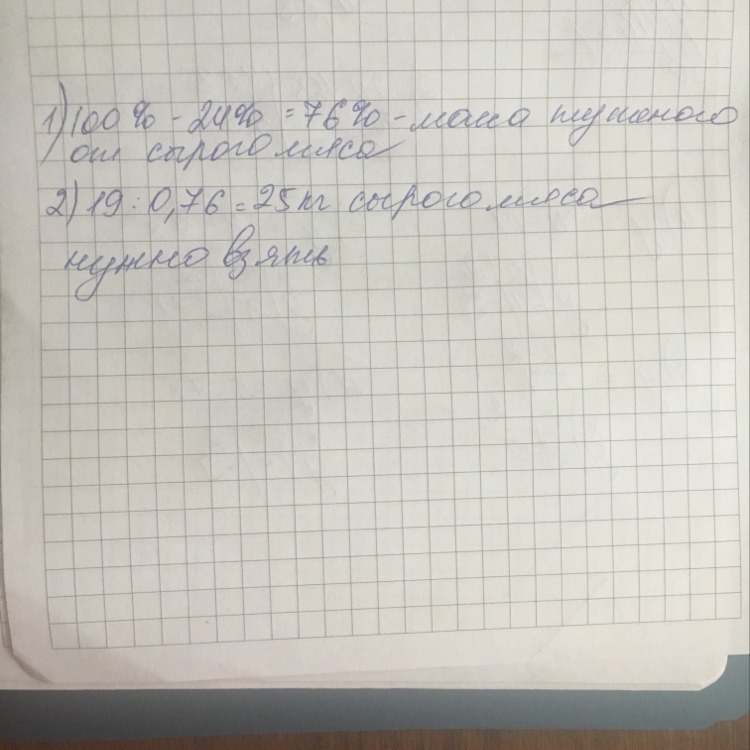 1) 100% - 24% = 76% - маса тушеного
от сырого мяса
2) 19 : 0,76 = 25 кг сырого мяса
нужно взять